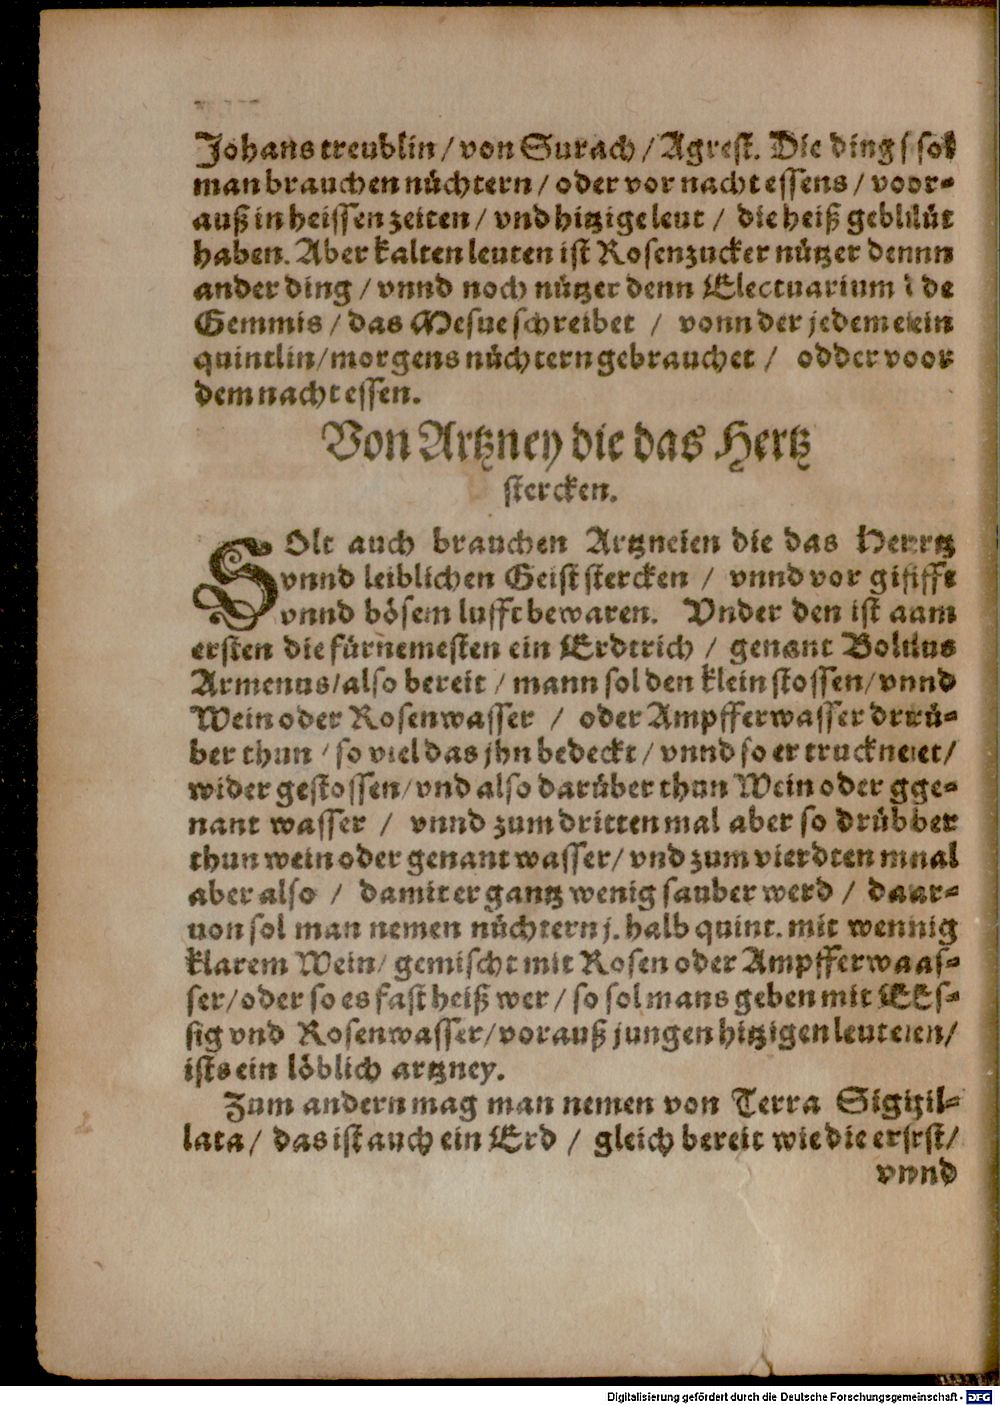 Johans treublin / von Surach / Agrest. Die ding sol
man brauchen nüchtern / oder vor nacht essens / vor-
auß in heissen zeiten / vnd hitzige leut / die heiß geblüt
haben. Aber kalten leuten ist Rosenzucker nützer denn
ander ding / vnnd noch nützer denn Electuarium de
Gemmis / das Mesue schreibet / vonn der jedem ein
quintlin / morgens nüchtern gebrauchet / odder vor
dem nacht essen.
Von Artzney die das Hertz
stercken.
SOlt auch brauchen Artzneien die das Hertz
vnnd leiblichen Geist stercken / vnnd vor gifft
vnnd bösem lufft bewaren. Vnder den ist am
ersten die fürnemesten ein Erdtrich / genant Bolus
Armenus / also bereit / mann sol den klein stossen / vnnd
Wein oder Rosenwasser / oder Ampfferwasser drü-
ber thun / so viel das jhn bedeckt / vnnd so er trucknet /
wider gestossen / vnd also darüber thun Wein oder ge-
nant wasser / vnnd zum dritten mal aber so drüber
thun wein oder genant wasser / vnd zum vierdten mal
aber also / damit er gantz wenig sauber werd / dar-
uon sol man nemen nüchtern j. halb quint. mit wenig
klarem Wein / gemischt mit Rosen oder Ampfferwas-
ser / oder so es fast heiß wer / so sol mans geben mit Es-
sig vnd Rosenwasser / vorauß jungen hitzigen leuten /
ists ein löblich artzney.
Zum andern mag man nemen von Terra Sigil-
lata / das ist auch ein Erd / gleich bereit wie die erst /
vnnd
Digitalisierung gefördert durch die Deutsche Forschungsgemeinschaft - DFG